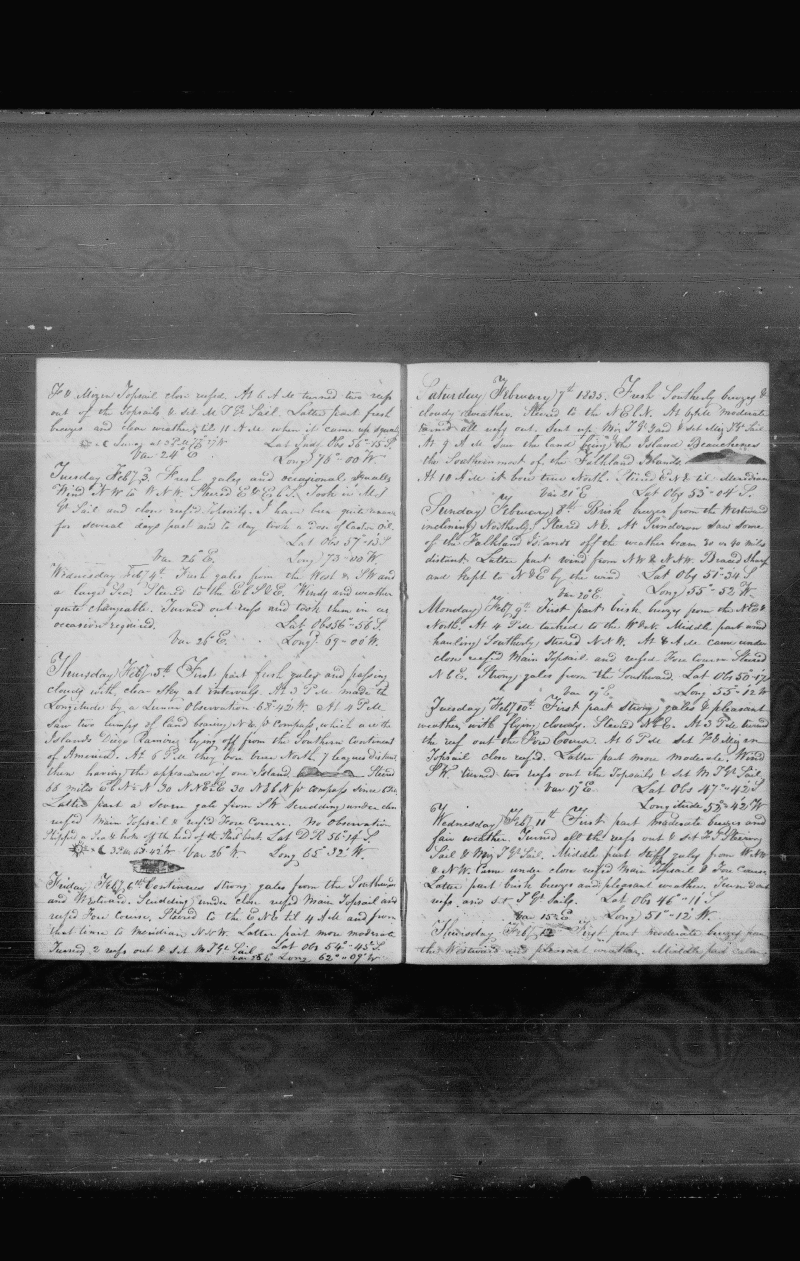 F & Mizen Topsail close reefed. At 6 A M turned two reefs
out of the Topsails & set M T Gt Sail. Latter part fresh
breezes and clear weather, til 11 A M when it came up squally
Lat Obs 56°-15 S.
Var 24° E Long 76°-00 W.
Tuesday Feby 3. Fresh gales and occasional squalls
Wind N W to W N W. Steered E & E b S. Took in M T
Gt Sail and close reefd Topsails. I have been quite unwell
for several days past and to day took a Dose of Castor Oil.
Lat Obs 57°-13 S
Var 26° E. Long 73-00 W.
Wednesday Feby 4th Fresh gales from the West & S W and
a large Sea. Steered to the E b S & E. Windy and weather
quite changeable. Turned out reefs and took them in as
occasion required. Lat Obs 56-56 S.
Var 26° E. Long 69-00 W.
Thursday Feby 5th. First part fresh gales and passing
clouds with clear sky at intervals. At 3 P M made the
Longitude by a Lunar Observation 68-42 W. At 4 P M
Saw two lumps of land bearing N & by compass, which are the
Islands Diego Ramirez lying off from the Southern Continent
of America. At 6 P M they bore true North 7 leagues distant,
then having the appearance of one Island Steered
68 miles E b N 30 N E b E 30 N E b N pr compass since
Latter part a severe gale from S W scudding under close
reefed Main Topsail & reefd Fore Course. No Observation
Shipped a Sea & broke off the head of the Star boat Lat D R 56°-14 S.
3 P M 68-42 W Var 26° Long 65°32' W.
Friday Feby 6th Continues strong gales from the Southward
and Westward. Scudding under close reefd Main Topsail and
reefd Fore Course. Steered to the E N E til 4 A M and from
that time to Meridian N N W. Latter part more moderate
Turned 2 reefs out & set M T Gt Sail Lat Obs 54°-45 S
Var 25 E Long 62°-09 W
Saturday February 7th 1835. Fresh Southerly breezes &
cloudy weather. Steered to the N E b N. At 6 P M moderate
turned all reefs out. Sent up Miz T Gt Yard & set Miz T Gt Sail
At 9 A M saw the land being the Island Beauchenes
the Southernmost of the Falkland Islands.
At 10 A M it bore true North. Steered E N E til Meridian
Var 21° E Lat Obs 53°-04 S.
Sunday February 8th. Brisk breezes from the Westward
inclining Northerly. Steered N E. At Sundown saw some
of the Falkland Islands off the weather beam 30 or 40 miles
distant. Latter part wind from N W & N N W. Braced sharp
and kept to N & E by the wind Lat Obs 51°-34 S
Var 20° E. Long 55°-52 W.
Monday Feby 9th. First part brisk breezes from the N E &
North. At 4 P M tacked to the W & N. Middle part wind
hauling Southerly, steered N N W. At 8 A M came under
close reefd Main Topsail and reefed Fore Course Steered
N b E. Strong gales from the Southward Lat Obs 50-17 S
Var 19° E. Long 55-12 W
Tuesday Feby 10th. First part strong gales & pleasant
weather with flying clouds. Steered N b E. At 3 P M turned
the reef out the Fore Course. At 6 P M set F & Mizen
Topsail close reefd. Latter part more moderate. Wind
S W turned two reefs out the Topsails & set M T Gt Sail
Var 17° E. Lat Obs 47°-42 S
Longitude 52°-42 W
Wednesday Feby 11th First part moderate breezes and
fair weather. Turned all the reefs out & set F T Steering
Sail & Miz T Gt Sail. Middle part stiff gales from W N W
& N W. Came under close reefd Main Topsail & Fore Course
Latter part brisk breezes and pleasant weather. Turnd out
reefs and set T Gt Sails. Lat Obs 46°-11 S
Var 15° E. Long 51°-12 W.
Thursday Feby 12th First part moderate breezes from
the Westward and pleasant weather. Middle part calm